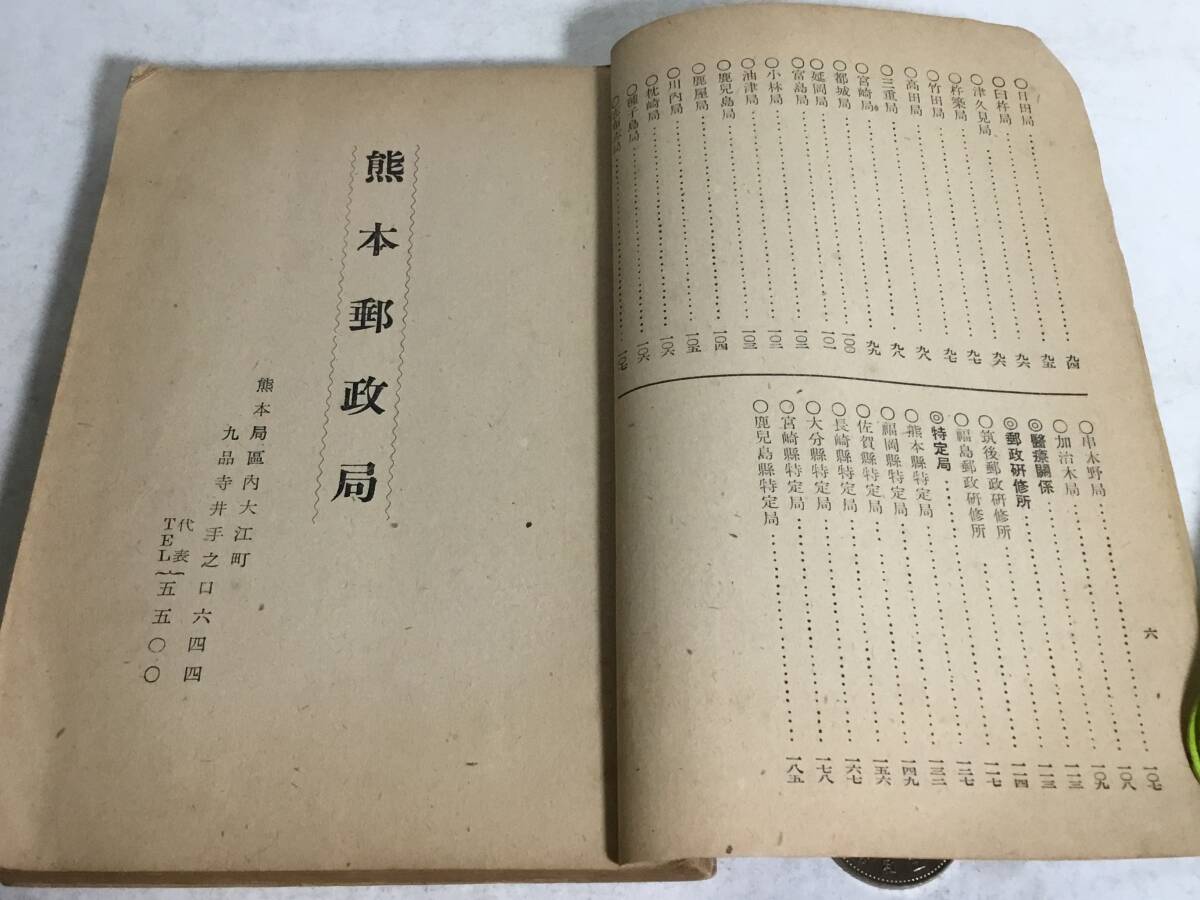 〇日田局……九四
〇臼杵局……九五
〇津久見局……九六
〇杵築局……九六
〇竹田局……九七
〇高田局……九七
〇三重局……九八
〇宮崎局……九八
〇都城局……九九
〇延岡局……一〇〇
〇富島局……一〇一
〇小林局……一〇三
〇油津局……一〇二
〇鹿兒島局……一〇三
〇鹿屋局……一〇四
〇川内局……一〇五
〇枕崎局……一〇六
〇種子島局……一〇六
局……一〇七
〇串木野局……一〇七
〇加治木局……一〇八
◎醫療關係……一〇九
◎郵政研修所……一一三
〇筑後郵政研修所……一一三
〇福島郵政研修所……一一四
◎特定局……一一七
〇熊本縣特定局……一二七
〇福岡縣特定局……一三二
〇佐賀縣特定局……一四九
〇長崎縣特定局……一五六
〇大分縣特定局……一六七
〇宮崎縣特定局……一七八
〇鹿兒島縣特定局……一八五
六
熊本郵政局
熊本局區內大江町
九品寺井手之口六四四
代表TEL{五五〇〇